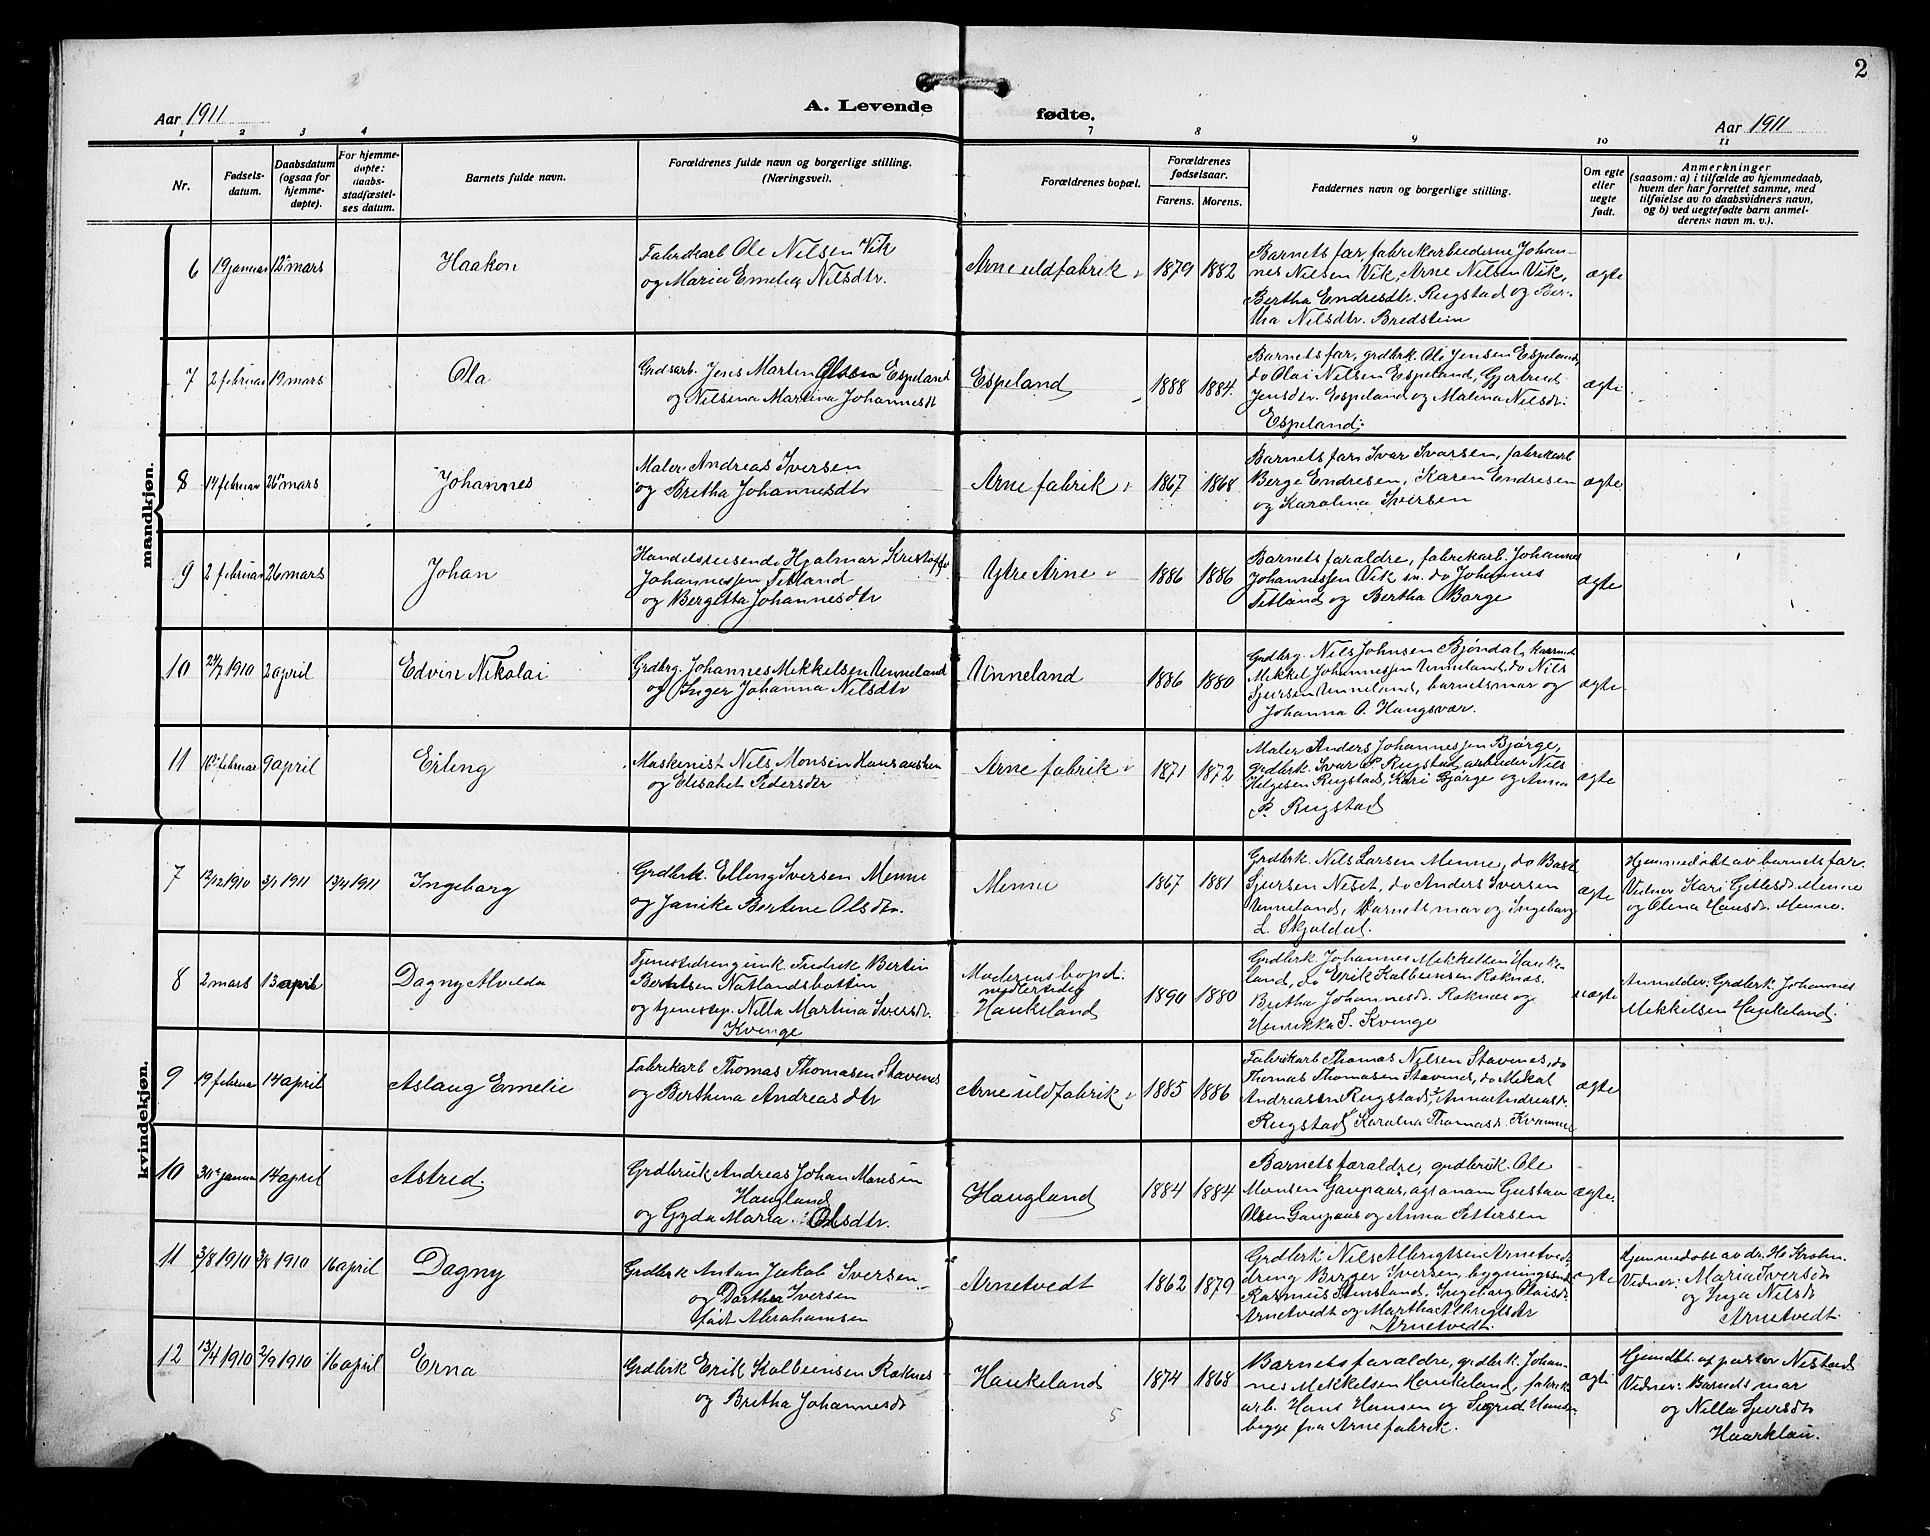 2
Aar 1911
A. Levende
fødte.
Aar 1911
1 2 3 4 7 8 9 10 11
Nr.
Fødsels-
datum.
Daabsdatum
(ogsaa for
hjemme-
døpte).
For hjemme-
døpte:
daabs-
stadfæstel-
ses datum.
Barnets fulde navn.
Forældrenes fulde navn og borgerlige stilling.
(Næringsvei).
Forældrenes bopæl.
Forældrenes
fødselsaar.
Farens. Morens.
Faddernes navn og borgerlige stilling.
Om egte
eller
uegte
født.
Anmerkninger
(saasom: a) i tilfælde av hjemmedaab,
hvem der har forrettet samme, med
tilføielse av to daabsvidners navn,
og b) ved uegtefødte barn anmel-
derens navn m. v.).
mandkjøn.
6 19 januar 12 mars
Haakon
Fabrikarb Ole Nilsen Vik
og Maria Emelia Nilsdtr.
Arne uldfabrik
1879 1882
Barnets far, fabrikarbeiderne Johan-
nes Nilsen Vik, Arne Nilsen Vik,
Bertha Endresdtr. Rugstad og Ber-
tha Nilsdtr. Bredstein
ægte
7 2 februar 19 mars
Ola
Grdsarb. Jens Martin Olsen Espeland
og Nilsina Martina Johannesdt
Espeland
1888 1884
Barnets far, grdbrk. Ole Jensen Espeland,
do Olai Nilsen Espeland, Gjertrud
Jensdtr. Espeland og Malena Nilsdtr.
Espeland.
ægte
8 14 februar 26 mars
Johannes
Maler Andreas Iversen
og Bretha Johannesdtr
Arne fabrik
1867 1868
Barnets far, Ivar Ivarsen, fabrikarb
Berge Endresen, Karen Endresen
og Karolina Iversen
ægte
9 2 februar 26 mars
Johan
Handelsreisende Hjalmar Kristoffer
Johannessen Tetland
og Bergetta Johannesdtr
Ytre Arne
1886 1886
Barnets foraldre, fabrikarb. Johannes
Johannessen Vik sn. do Johannes
Tetland og Bertha Borge
ægte
10 24/7 1910 2 april
Edvin Nikolai
Grdbrg. Johannes Mikkelsen Unneland
og Inger Johanna Nilsdtr
Unneland
1886 1880
Grdbrg. Nils Johnsen Bjøndal,
Mekkel Johannessen Unneland, do Nils
Sjursen Unneland, barnets mor og
Johanna O. Haugsvær.
ægte
11 10 februar 9 april
Erling
Maskinist Nils Monsen
og Elisabet Pedersdtr
Arne fabrik
1871 1872
Maler Anders Johannessen Bjørge,
grdbrk. Ivar P. Rugstad, arbeider Nils
Helgesen Rugstad, Kari Bjørge og Anna
P. Rugstad
ægte
kvindekjøn.
7 12/12 1910 3/1 1911 13/4 1911
Ingeborg
Grdbrk. Elling Iversen Menne
og Janike Bertine Olsdtr.
Menne
1867 1881
Grdbrk. Nils Larsen Menne, do
Sjursen Neset, do Anders Iversen
Unneland, barnets mor og Ingeborg
L. Skjoldal.
ægte
Hjemmedøbt av barnets far.
Vidner Kari Menne
og Olena Hansdtr. Menne.
8 2 mars 13 april
Dagny Alvilda
Tjenestedreng unk. Fredrik Bertin
Berntsen Natlandsbotten
og tjenestep. Nilla Martina Iversdtr.
Kvinge
Moderens bopæl
midlertidig
Haukeland
1890 1880
Grdbrk. Johannes Mekkelsen Hauke-
land, do Erik Kolbeinsen Roknæs,
Bretha Johannesdtr. Roknæs og
Henrikka S. Kvinge
uægte
Anmelder: Grdbrk. Johannes
Mekkelsen Haukeland.
9 19 februar 14 april
Aslaug Emelie
Fabrikarb Thomas Thomasen Stavenes
og Berthina Andreasdtr
Arne uldfabrik
1885 1886
Fabrikarb Thomas Nilsen Stavenes, do
Thomas Thomasen Stavenes, do Mikal
Andreassen Rugstad, Anna Andreasdtr.
Rugstad, Karolina Thomasdtr. Kvamme
ægte
10 30 januar 14 april
Astrid
Grdbruk Andreas Johan Monsen
Haugland
og Gyda Maria Olsdtr.
Haugland
1884 1884
Barnets foraldre, grdbruk. Ole
Monsen Gaupaas, agronom Gustav
Olsen Gaupaas og Anna Pettersen
ægte
11 3/8 1910 3/8 1910 16 april
Dagny
Grdbrk Anton Jakob Iversen
og Dorthea Iversen
født Abrahamsen
Arnetvedt
1862 1879
Grdbrk Nils Albrigtsen Arnetvedt
dreng Birger Iversen,
Rasmus , Ingeborg Olaisdtr
Arnetvedt og Martha Albrigtsdtr
Arnetvedt.
ægte
Hjemmedøbt av dr. H. Krohn
Vidner: Maria Iversdtr
og Inga Nilsdtr
Arnetvedt
12 13/4 1910 2/9 1910 16 april
Erna
Grdbrk Erik Kolbeinsen Roknes
og Bretha Johannesdtr
Haukeland
1874 1868
5
Barnets foraldre, grdbrk. Johan-
nes Mekkelsen Haukeland, fabrik-
arb. Hans Hansen og Sigrid Hansen
begge fra Arne fabrik.
ægte
Hjemdbt. af pastor Nestad
Vidner: Barnets mor
og Nilla Sjursdtr
Haarklau.